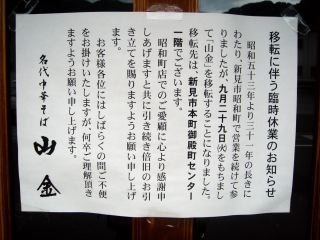 移転に伴う臨時休業のお知らせ
昭和五十三年より三十一年の長きに
わたり、新見市昭和町で営業を続けて参
りましたが、九月二十九日(火)をもちまし
て「山金」を移転することになりました。
移転先は、新見市本町御殿町センター
一階でございます。
昭和町店でのご愛顧に心より感謝申
しあげますと共に引き続き倍旧のお引
き立てを賜りますようお願い申し上げ
ます。
お客様各位にはしばらくの間ご不便
をお掛けいたしますが、何卒ご理解頂き
ますようお願い申し上げます。
名代中華そば
山金